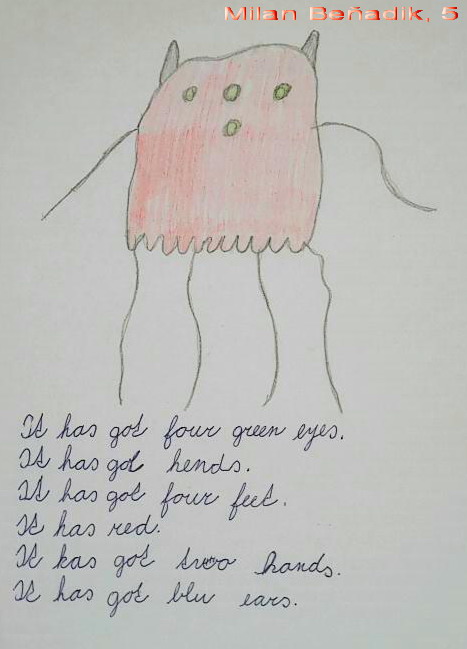 Milan Beňadik, 5
It has got four green eyes.
It has got hends.
It has got four feet.
It has red.
It kas got two hands.
It has got blu ears.